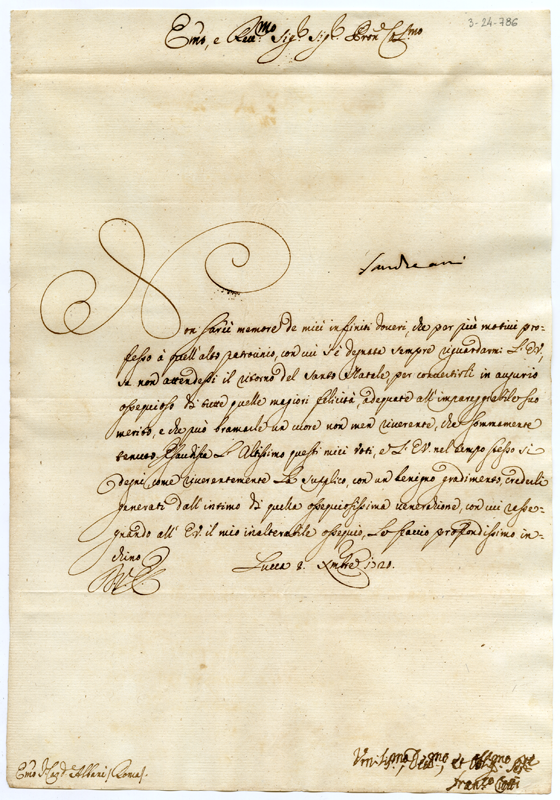 3-24-786
Emo, e Reu.mo Sig.r Sig.r Pron.e Col.mo
Non sarei memore de miei infiniti doueri, che per più motiui pro-
fesso à quell'alto patrocinio, con cui si degnata sempre riguardarmi L'E.V.
se non attendessi il ritorno del Santo Natale, per conuertirli in augurio
ossequioso di tutte quelle magiori felicità, adequate all'impareggiabile suo
merito, e che può bramarle un cuore non men riuerente, che sommamente
tenuto. Esaudisca L'Altissimo questi miei voti, e L'E.V. nel tempo stesso si
degni, come riuerentemente La supplico, con un benigno gradimento, crederli
generati dall'intimo di quella ossequiosissima uenerazione, con cui rasse-
gnando all'E.V. il mio inalterabile ossequio, Le faccio profondissimo in-
chino
Lucca 8. Xmbre 1720.
V. E.
Emo Albani / Roma /.
Vmiliss.mo Deu.mo, et Obl.mo Ser.re
Fran.co